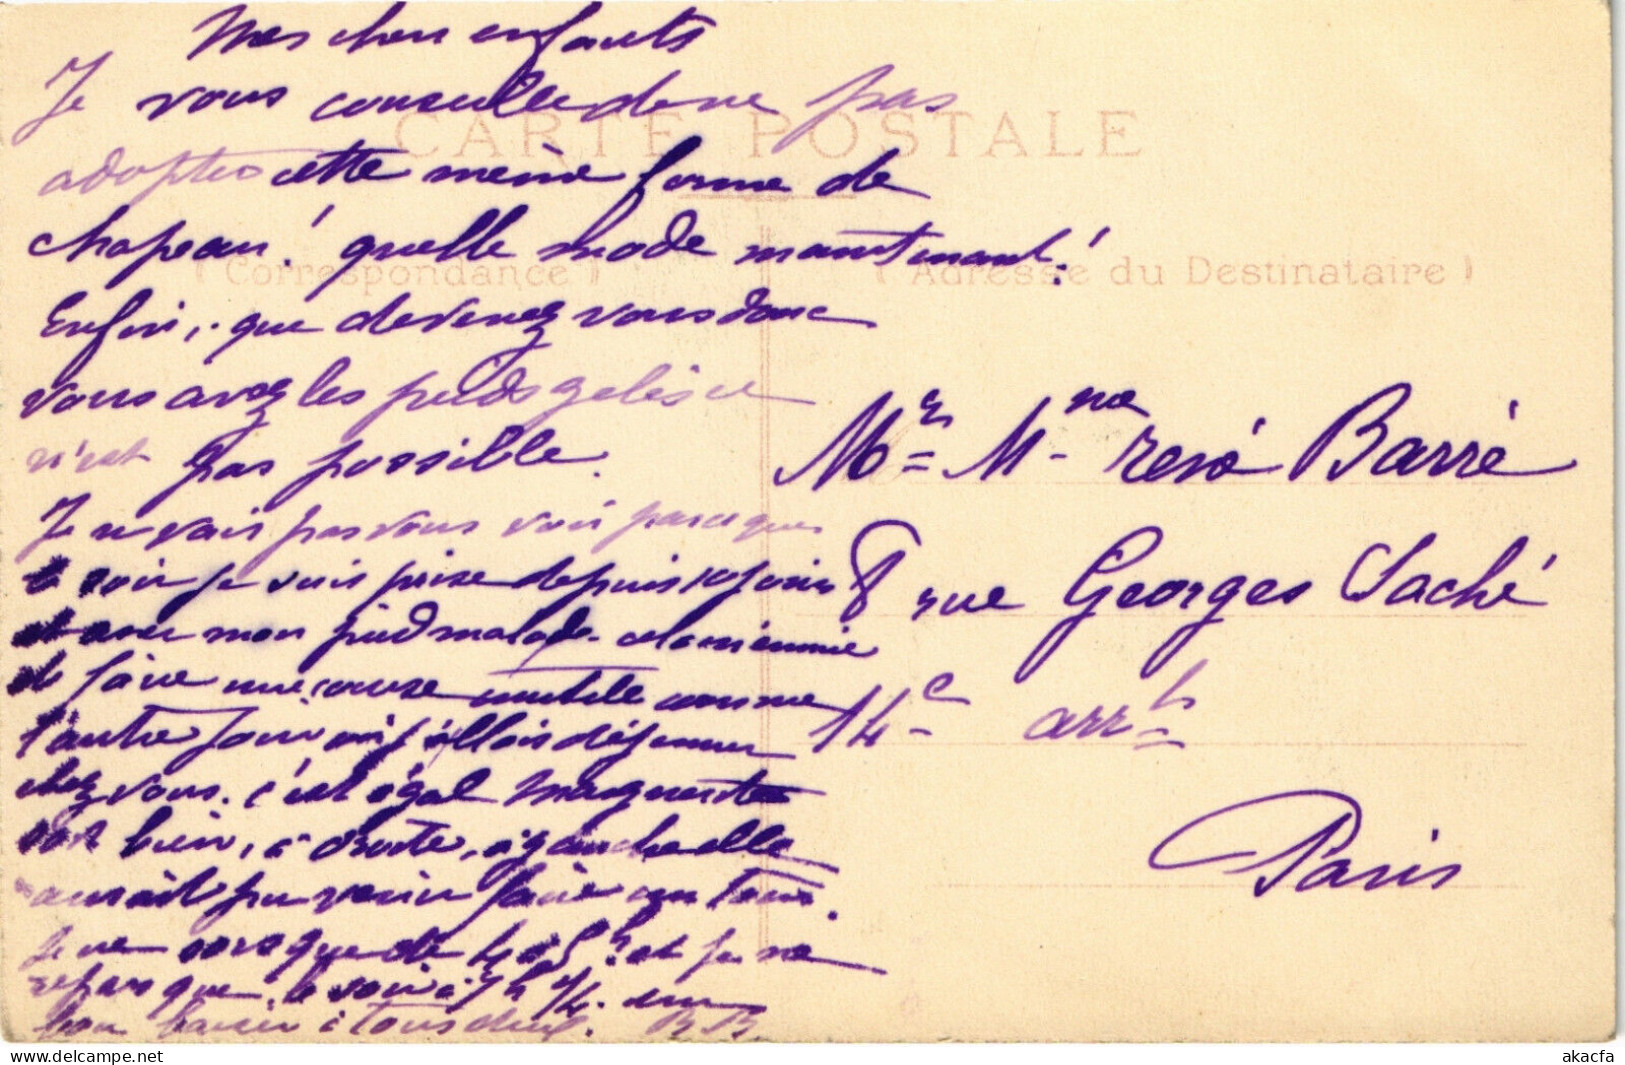 Mes chers enfants
Je vous conseille de ne pas
adopter cette même forme de
chapeau! quelle mode maintenant!
Enfin, que devenez vous donc
vous avez les pieds gelés ce
n'est pas possible.
Je ne vais pas vous voir parce que
le soir je suis prise depuis 10 jours
et avec mon pied malade cela m'ennuie
de faire une course inutile comme
l'autre jour où j'allais déjeuner
chez vous. c'est égal Marguerite
est bien, à droite, à gauche elle
aurait pu venir faire un tour.
Je ne sors que de 4 à 5h et je ne
repars que le soir à 7h 1/4. un
bon baiser à tous deux. B B.
CARTE POSTALE
( Correspondance )
( Adresse du Destinataire )
Mr = Mme René Barré
8 rue Georges Saché
14e arrt
Paris
akacfa